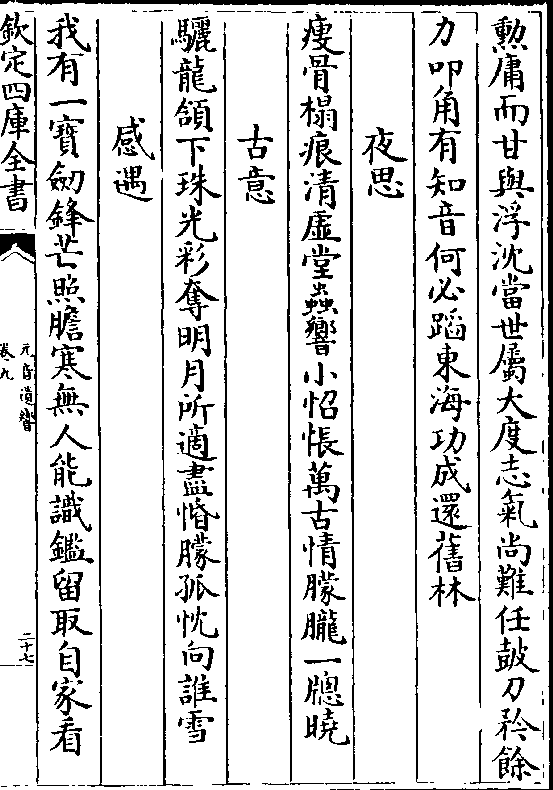 勲庸而甘與浮沈當世屬大度志氣尚難任鼓刀矜餘
力叩角有知音何必蹈東海功成還舊林
夜思
痩骨榻痕清虚堂蟲響小怊悵萬古情朦朧一牎曉
古意
驪龍頷下珠光彩奪明月所適盡惛朦孤忱向誰雪
感遇
我有一寶劒鋒芒照膽寒無人能識鑑留取自家看
欽定四庫全書
元音遺響
卷九
二十七